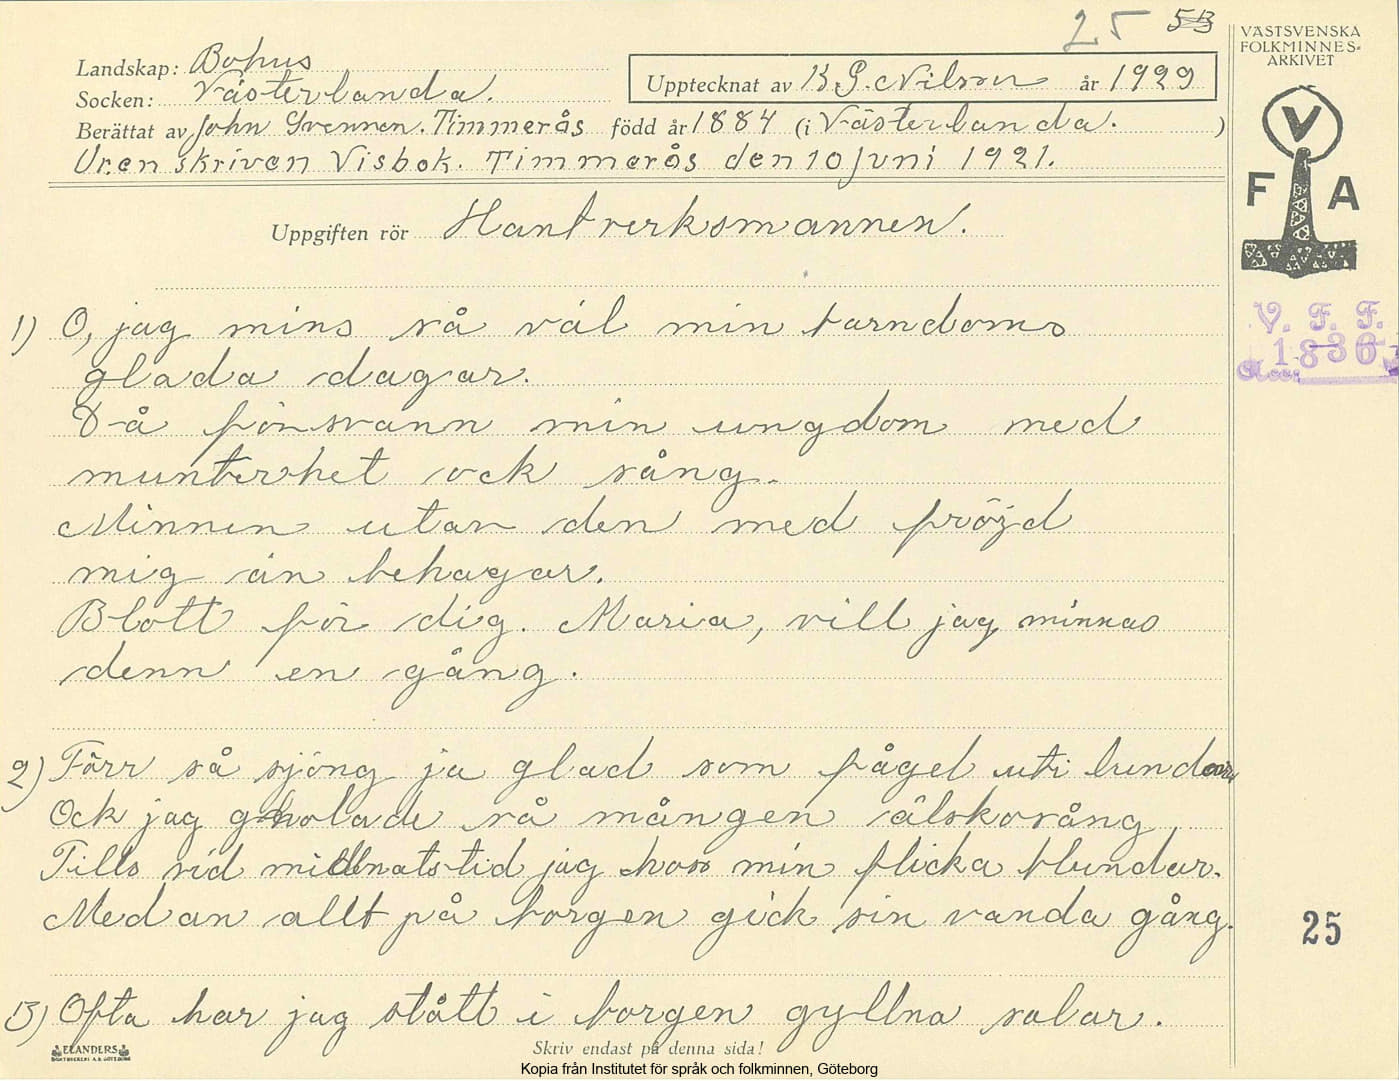 25 53
VÄSTSVENSKA
FOLKMINNES-
ARKIVET
Landskap: Bohus
Socken: Västerlanda.
Upptecknat av K. G. Nilson år 1929
Berättat av John Svensson. Timmerås född år 1884 (i Västerlanda. )
Ur.en skriven Visbok. Timmerås den 10 Juni 1921.
V
F A
Uppgiften rör Hantverksmannen.
V. F. F.
1836
1) O, jag mins så väl min barndoms
glada dagar.
Då försvann min ungdom med
munterhet ock sång.
Minnen utav den med fröjd
mig än behagar.
Blott för dig. Maria, vill jag minnas
denn en gång.
2) Förr så sjöng ja glad som fågel uti lunden
Ock jag gnolade så mången älskosång
Tills vid midnatstid jag hoss min flicka blundar.
Medan allt på borgen gick sin vanda gång.
25
3) Ofta har jag stått i borgen gyllna salar.
ELANDERS
BOKTRYCKERI A.B. GÖTEBORG
Skriv endast på denna sida!
Kopia från Institutet för språk och folkminnen, Göteborg